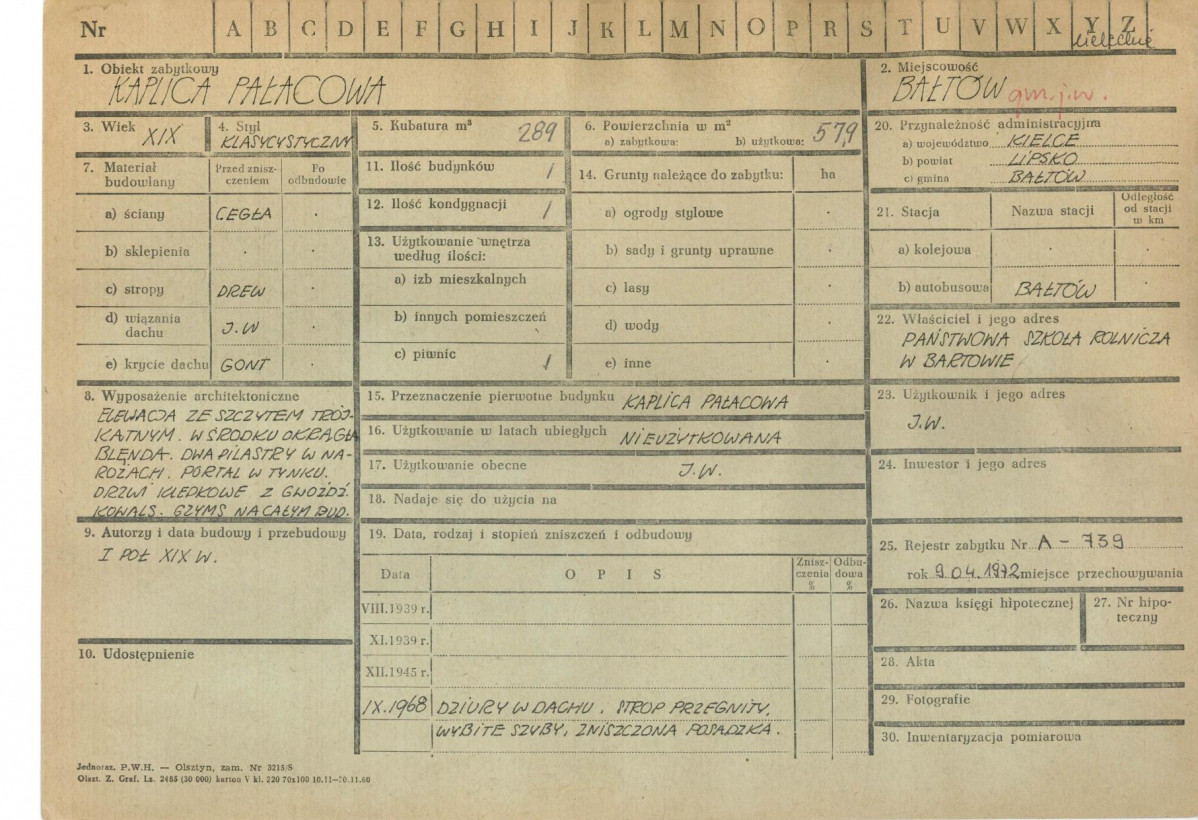 Nr A B C D E F G H I J K L M N O P R S T U V W X Y Z
kieleckie
1. Obiekt zabytkowy
KAPLICA PAŁACOWA
2. Miejscowość
BAŁTÓW gm. j.w.
3. Wiek XIX
4. Styl
KLASYCYSTYCZNY
5. Kubatura m³ 289
6. Powierzchnia w m²
a) zabytkowa: b) użytkowa: 57,9
20. Przynależność administracyjna
a) województwo KIELCE
b) powiat LIPSKO
c) gmina BAŁTÓW
7. Materiał budowlany
Przed znisz-
czeniem
Po
odbudowie
a) ściany CEGŁA .
b) sklepienia . .
c) stropy DREW .
d) wiązania
dachu J.W .
e) krycie dachu GONT .
11. Ilość budynków 1
12. Ilość kondygnacji 1
13. Użytkowanie wnętrza
według ilości:
a) izb mieszkalnych
b) innych pomieszczeń
c) piwnic 1
14. Grunty należące do zabytku: ha
a) ogrody stylowe .
b) sady i grunty uprawne .
c) lasy .
d) wody .
e) inne .
21. Stacja Nazwa stacji Odległość
od stacji
w km
a) kolejowa . .
b) autobusowa BAŁTÓW .
22. Właściciel i jego adres
PAŃSTWOWA SZKOŁA ROLNICZA
W BARTOWIE
8. Wyposażenie architektoniczne
ELEWACJA ZE SZCZYTEM TRÓJ-
KATNYM. W ŚRODKU OKRĄGŁA
BLENDA. DWA PILASTRY W NA-
ROŻACH. PORTAL W TYNKU.
DRZWI KLEPKOWE Z GWOŹDZ.
KOWALS. GZYMS NA CAŁYM BUD.
15. Przeznaczenie pierwotne budynku KAPLICA PAŁACOWA
16. Użytkowanie w latach ubiegłych NIEUŻYTKOWANA
17. Użytkowanie obecne J.W.
18. Nadaje się do użycia na
23. Użytkownik i jego adres
J.W.
24. Inwestor i jego adres
9. Autorzy i data budowy i przebudowy
I POŁ XIX W.
10. Udostępnienie
19. Data, rodzaj i stopień zniszczeń i odbudowy
Data OPIS Znisz-
czenia
% Odbu-
dowa
%
VIII.1939 r.
XI.1939 r.
XII.1945 r.
IX.1968 DZIURY W DACHU. STROP PRZEGNITY.
WYBITE SZYBY, ZNISZCZONA POSADZKA.
25. Rejestr zabytku Nr A - 739
rok 9.04.1972 miejsce przechowywania
26. Nazwa księgi hipotecznej
27. Nr hipo-
teczny
28. Akta
29. Fotografie
30. Inwentaryzacja pomiarowa
Jednoraz. P.W.H. — Olsztyn, zam. Nr 3215/S
Olszt. Z. Graf. Lz. 2485 (30 000) karton V kl. 220 70x100 10.11—10.11.60